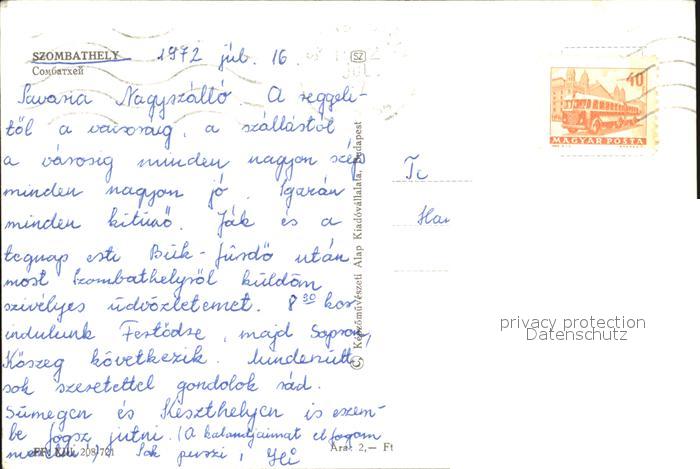 SZOMBATHELY 1972 júl. 16.
Сомбатхей
Savaria Nagyszálló. A reggeli-
től a városig, a szállástól
a városig minden nagyon szép
minden nagyon jó. Igazán
minden kitünő. Ják és a
tegnap esti Bük-fürdő után
most Szombathelyről küldöm
szivélyes üdvözletemet. 8 30 kor
indulunk Fertődre, majd Sopron,
Kőszeg következik. Mindenütt
sok szeretettel gondolok rád.
Sümegen és Keszthelyen is eszem-
be fogsz jutni. (A kalandjaimat el fogom
mesélni!) Sok puszi,
FF. XIII. 208/721
Ára: 2,— Ft
SZ
Képzőművészeti Alap Kiadóvállalata, Budapest
40
MAGYAR POSTA
privacy protection
Datenschutz